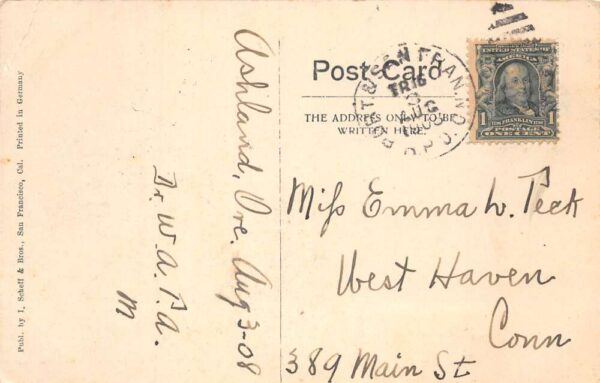 Publ. by I. Scheff & Bros., San Francisco, Cal. Printed in Germany
Ashland, Ore. Aug 3-08
Dr. W. A. P. A.
M
Post Card
THE ADDRESS ONLY TO BE
WRITTEN HERE
PORT & SAN FRAN
TR.16
UNITED STATES OF
AMERICA
FRANKLIN
1 1
POSTAGE
ONE CENT
Miſs Emma W. Peck
West Haven
Conn
389 Main St